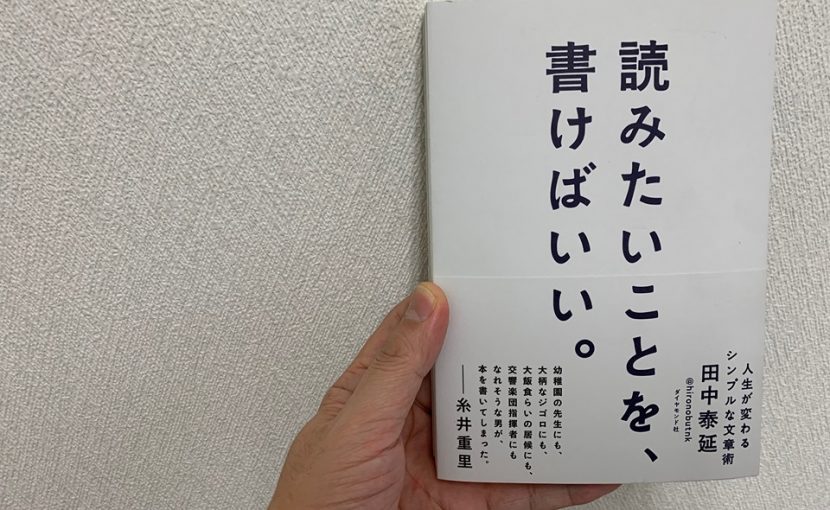 読みたいことを、
書けばいい。
人生が変わる
シンプルな文章術
田中泰延
@hironobutnk
ダイヤモンド社
幼稚園の先生にも、
大柄なジゴロにも、
大飯食らいの居候にも、
交響楽団指揮者にも
なれそうな男が、
本を書いてしまった。
──糸井重里